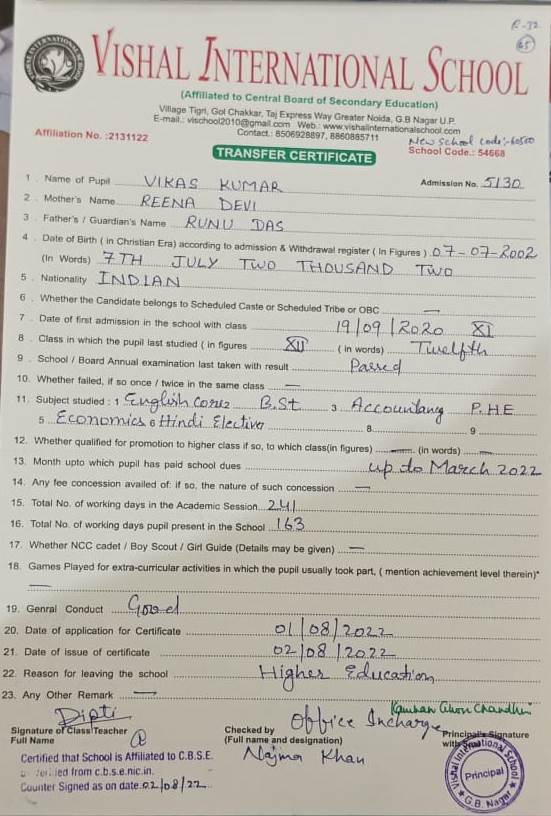 R-32
65
VISHAL INTERNATIONAL SCHOOL
(Affiliated to Central Board of Secondary Education)
Village Tigri, Gol Chakkar, Taj Express Way Greater Noida, G.B Nagar U.P.
E-mail.: vischool2010@gmail.com Web.: www.vishalinternationalschool.com
Affiliation No. :2131122 Contact.: 8506928897, 8860885711 New School Code:-60500
School Code.: 54668
TRANSFER CERTIFICATE
1 . Name of Pupil VIKAS KUMAR Admission No. 5130
2 . Mother's Name REENA DEVI
3 . Father's / Guardian's Name RUNU DAS
4 . Date of Birth ( in Christian Era) according to admission & Withdrawal register ( In Figures ) 07-07-2002
(In Words) 7TH JULY TWO THOUSAND TWO
5 . Nationality INDIAN
6 . Whether the Candidate belongs to Scheduled Caste or Scheduled Tribe or OBC —
7 . Date of first admission in the school with class 19/09/2020 XI
8 . Class in which the pupil last studied ( in figures XII ( in words) Twelfth
9 . School / Board Annual examination last taken with result Passed
10. Whether failed, if so once / twice in the same class —
11. Subject studied : 1 English Core 2 B.St 3 Accountancy P.H.E
5 Economics 6 Hindi Elective 8 9
12. Whether qualified for promotion to higher class if so, to which class(in figures) — (in words) —
13. Month upto which pupil has paid school dues up to March 2022
14. Any fee concession availed of: if so, the nature of such concession —
15. Total No. of working days in the Academic Session 241
16. Total No. of working days pupil present in the School 163
17. Whether NCC cadet / Boy Scout / Girl Guide (Details may be given) —
18. Games Played for extra-curricular activities in which the pupil usually took part, ( mention achievement level therein)*
—
19. Genral Conduct Good
20. Date of application for Certificate 01/08/2022
21. Date of issue of certificate 02/08/2022
22. Reason for leaving the school Higher Education
23. Any Other Remark —
Dipti Office Incharge
Signature of Class Teacher Checked by Principal's Signature
Full Name (Full name and designation) with
Najma Khan
Certified that School is Affiliated to C.B.S.E.
from c.b.s.e.nic.in.
Counter Signed as on date 02/08/22
Vishal International School
Principal
G.B. Nagar